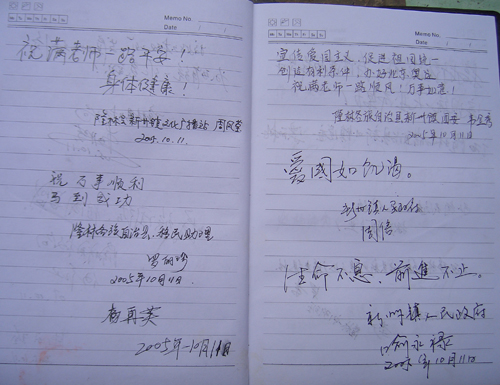 Memo No.
Date
祝满老师一路平安！
身体健康！
隆林县新州镇文化广播站 周风堂
2005.10.11.
祝万事顺利
马到成功
隆林各族自治县 移民助理
2005年10月11日
杨再英
2005年—10月11日
Memo No.
Date
宣传爱国主义，促进祖国统一
创造有利条件，办好北京奥运
祝满老师一路顺风！万事如意！
隆林各族自治县新州镇
2005年10月11日
爱国如饥渴。
新州镇人
周倍
生命不息，前進不止。
新州镇人民政府
2005年10月11日